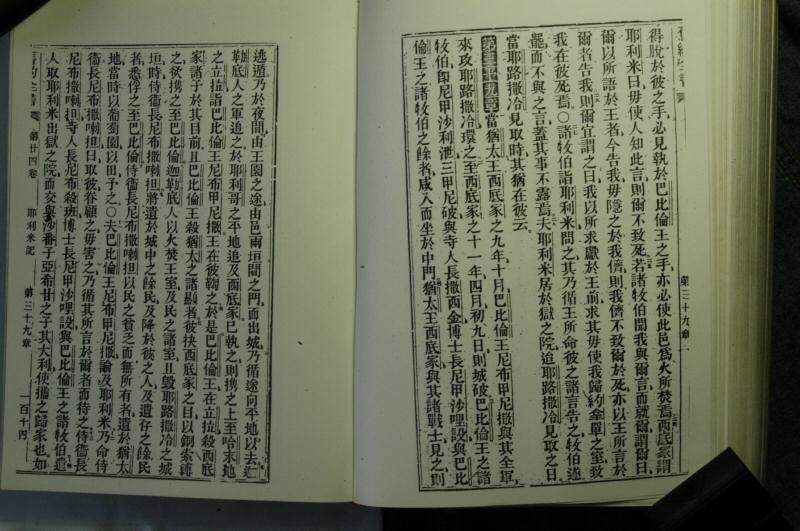 得脫於彼之手必見執於巴比倫王之手亦必使此邑爲火所焚焉西底家謂
耶利米曰毋使人知此言則爾不致死若諸牧伯聞我與爾言而就爾謂爾曰
爾以所語於王者今告我毋隱之於我儕則我儕不致爾於死亦以王所言於
爾者告我則爾宜謂之曰我以所求獻於王前求其毋使我歸約拿單之室致
我在彼死焉○諸牧伯詣耶利米問之其乃循王所命彼之諸言告之牧伯遂
罷而不與之言蓋其事不露焉夫耶利米居於獄之院迨耶路撒冷見取之日
當耶路撒冷見取時其猶在彼云
第三十九章當猶太王西底家之九年十月巴比倫王尼布甲尼撒與其全軍
來攻耶路撒冷環之至西底家之十一年四月初九日則城破巴比倫王之諸
牧伯卽尼甲沙利泄三甲尼破與寺人長撒西金博士長尼甲沙哩設與巴比
倫王之諸牧伯之餘者咸入而坐於中門猶太王西底家與其諸戰士見之則
第三十九章
逃遁乃於夜間由王園之途由邑兩垣間之門而出城乃循途向平地以去迦
勒底人之軍追之於耶利哥之平地追及西底家已執之則携之上至哈末地
之立拉詣巴比倫王尼布甲尼撒王在彼鞫之於是巴比倫王在立拉殺西底
家諸子於其目前且巴比倫王殺猶太之諸顯者彼抉西底家之目以銅索縛
之欲携之至巴比倫迦勒底人以火焚王室及民之諸室且毀耶路撒冷之城
垣時侍衞長尼布撒喇担將遺於城中之餘民及降於彼之人及遺存之餘民
者悉俘之至巴比倫侍衞長尼布撒喇担以民之貧乏而無所有者遺於猶太
地當時以葡萄園以田予之○夫巴比倫王尼布甲尼撒諭及耶利米乃命侍
衞長尼布撒喇担曰取彼眷顧之毋害之乃循其所言於爾者而待之侍衞長
尼布撒喇担寺人長尼布殺班博士長尼甲沙哩設與巴比倫王之諸牧伯遣
人取耶利米出獄之院而交與沙番子亞希甘之子其大利使攜之歸家也如
第廿四卷 耶利米記 第三十九章 一百十四